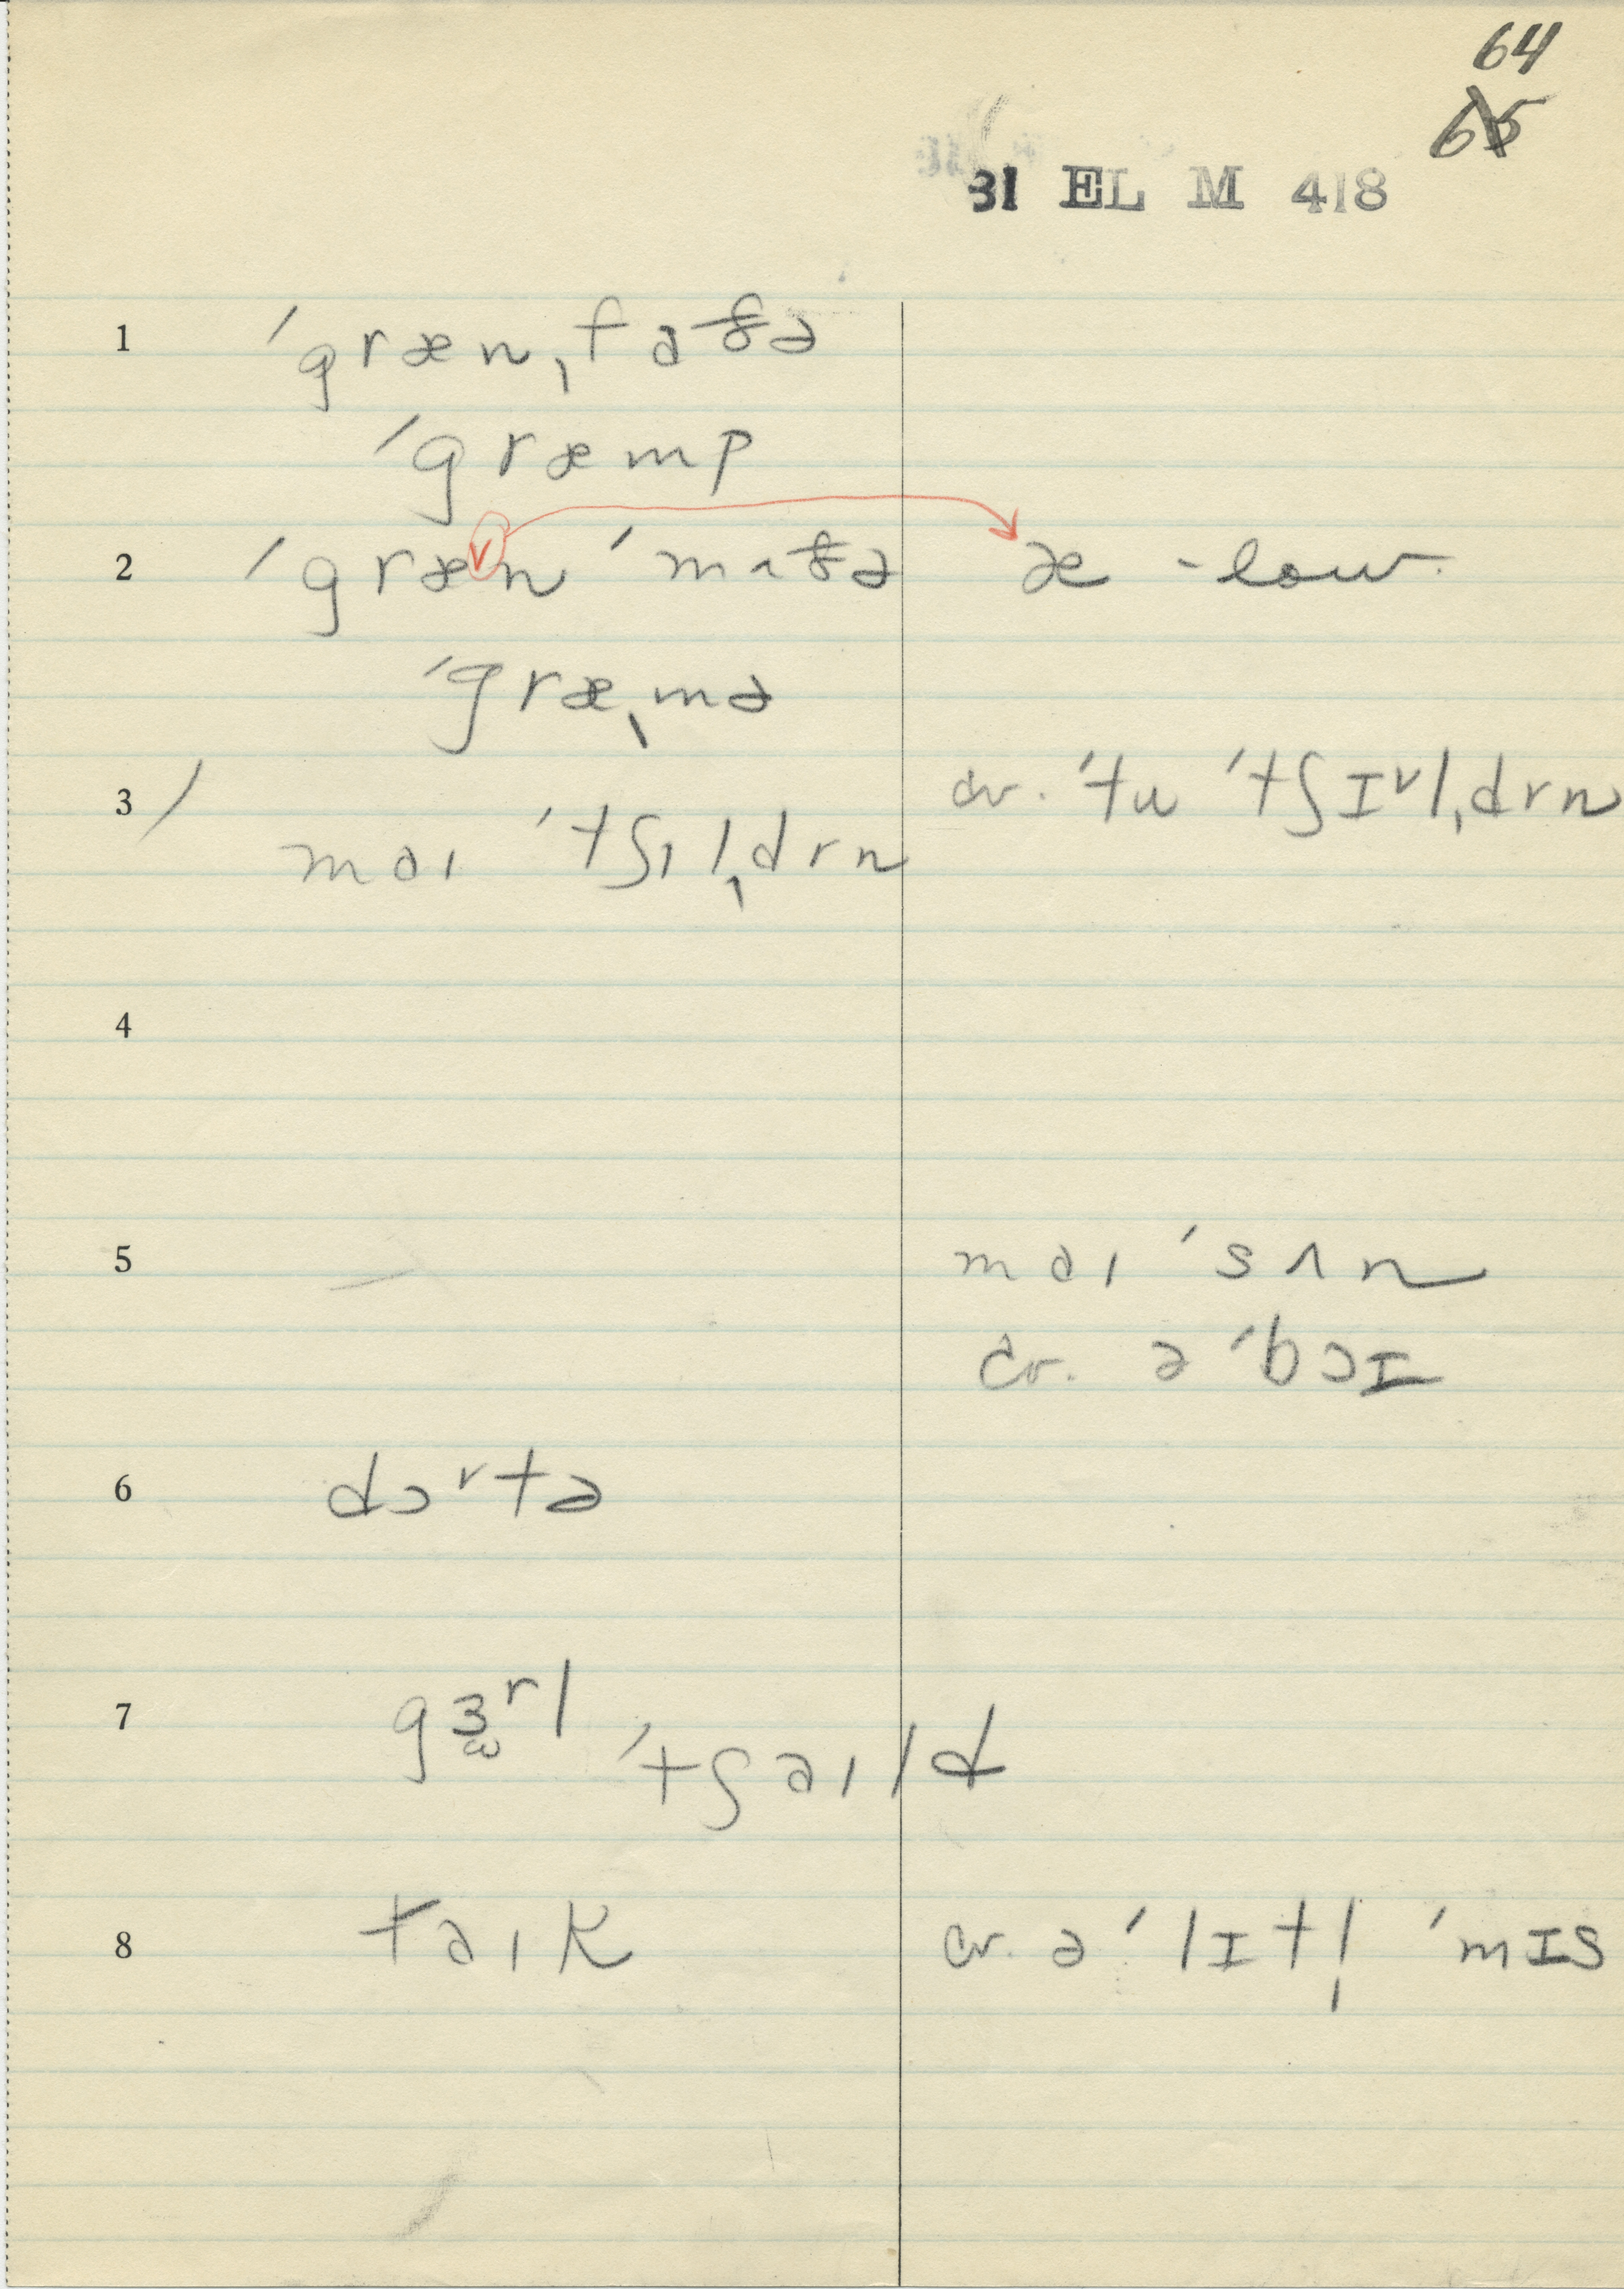 64
65
31 EL M 418
1 ˈgrænˌfaðə
ˈgræmp
2 ˈgræn ˈmʌðə æ - low.
ˈgræˌmə
3 / cv. ˈtu ˈtʃɪᵛlˌdrn
maɪ ˈtʃɪlˌdrn
4
5 — maɪ ˈsʌn
cv. ə ˈbɔɪ
6 dɔʳtə
7 gɜʳl
ˈtʃaɪld
8 taɪk cv. ə ˈlɪtl̩ ˈmɪs